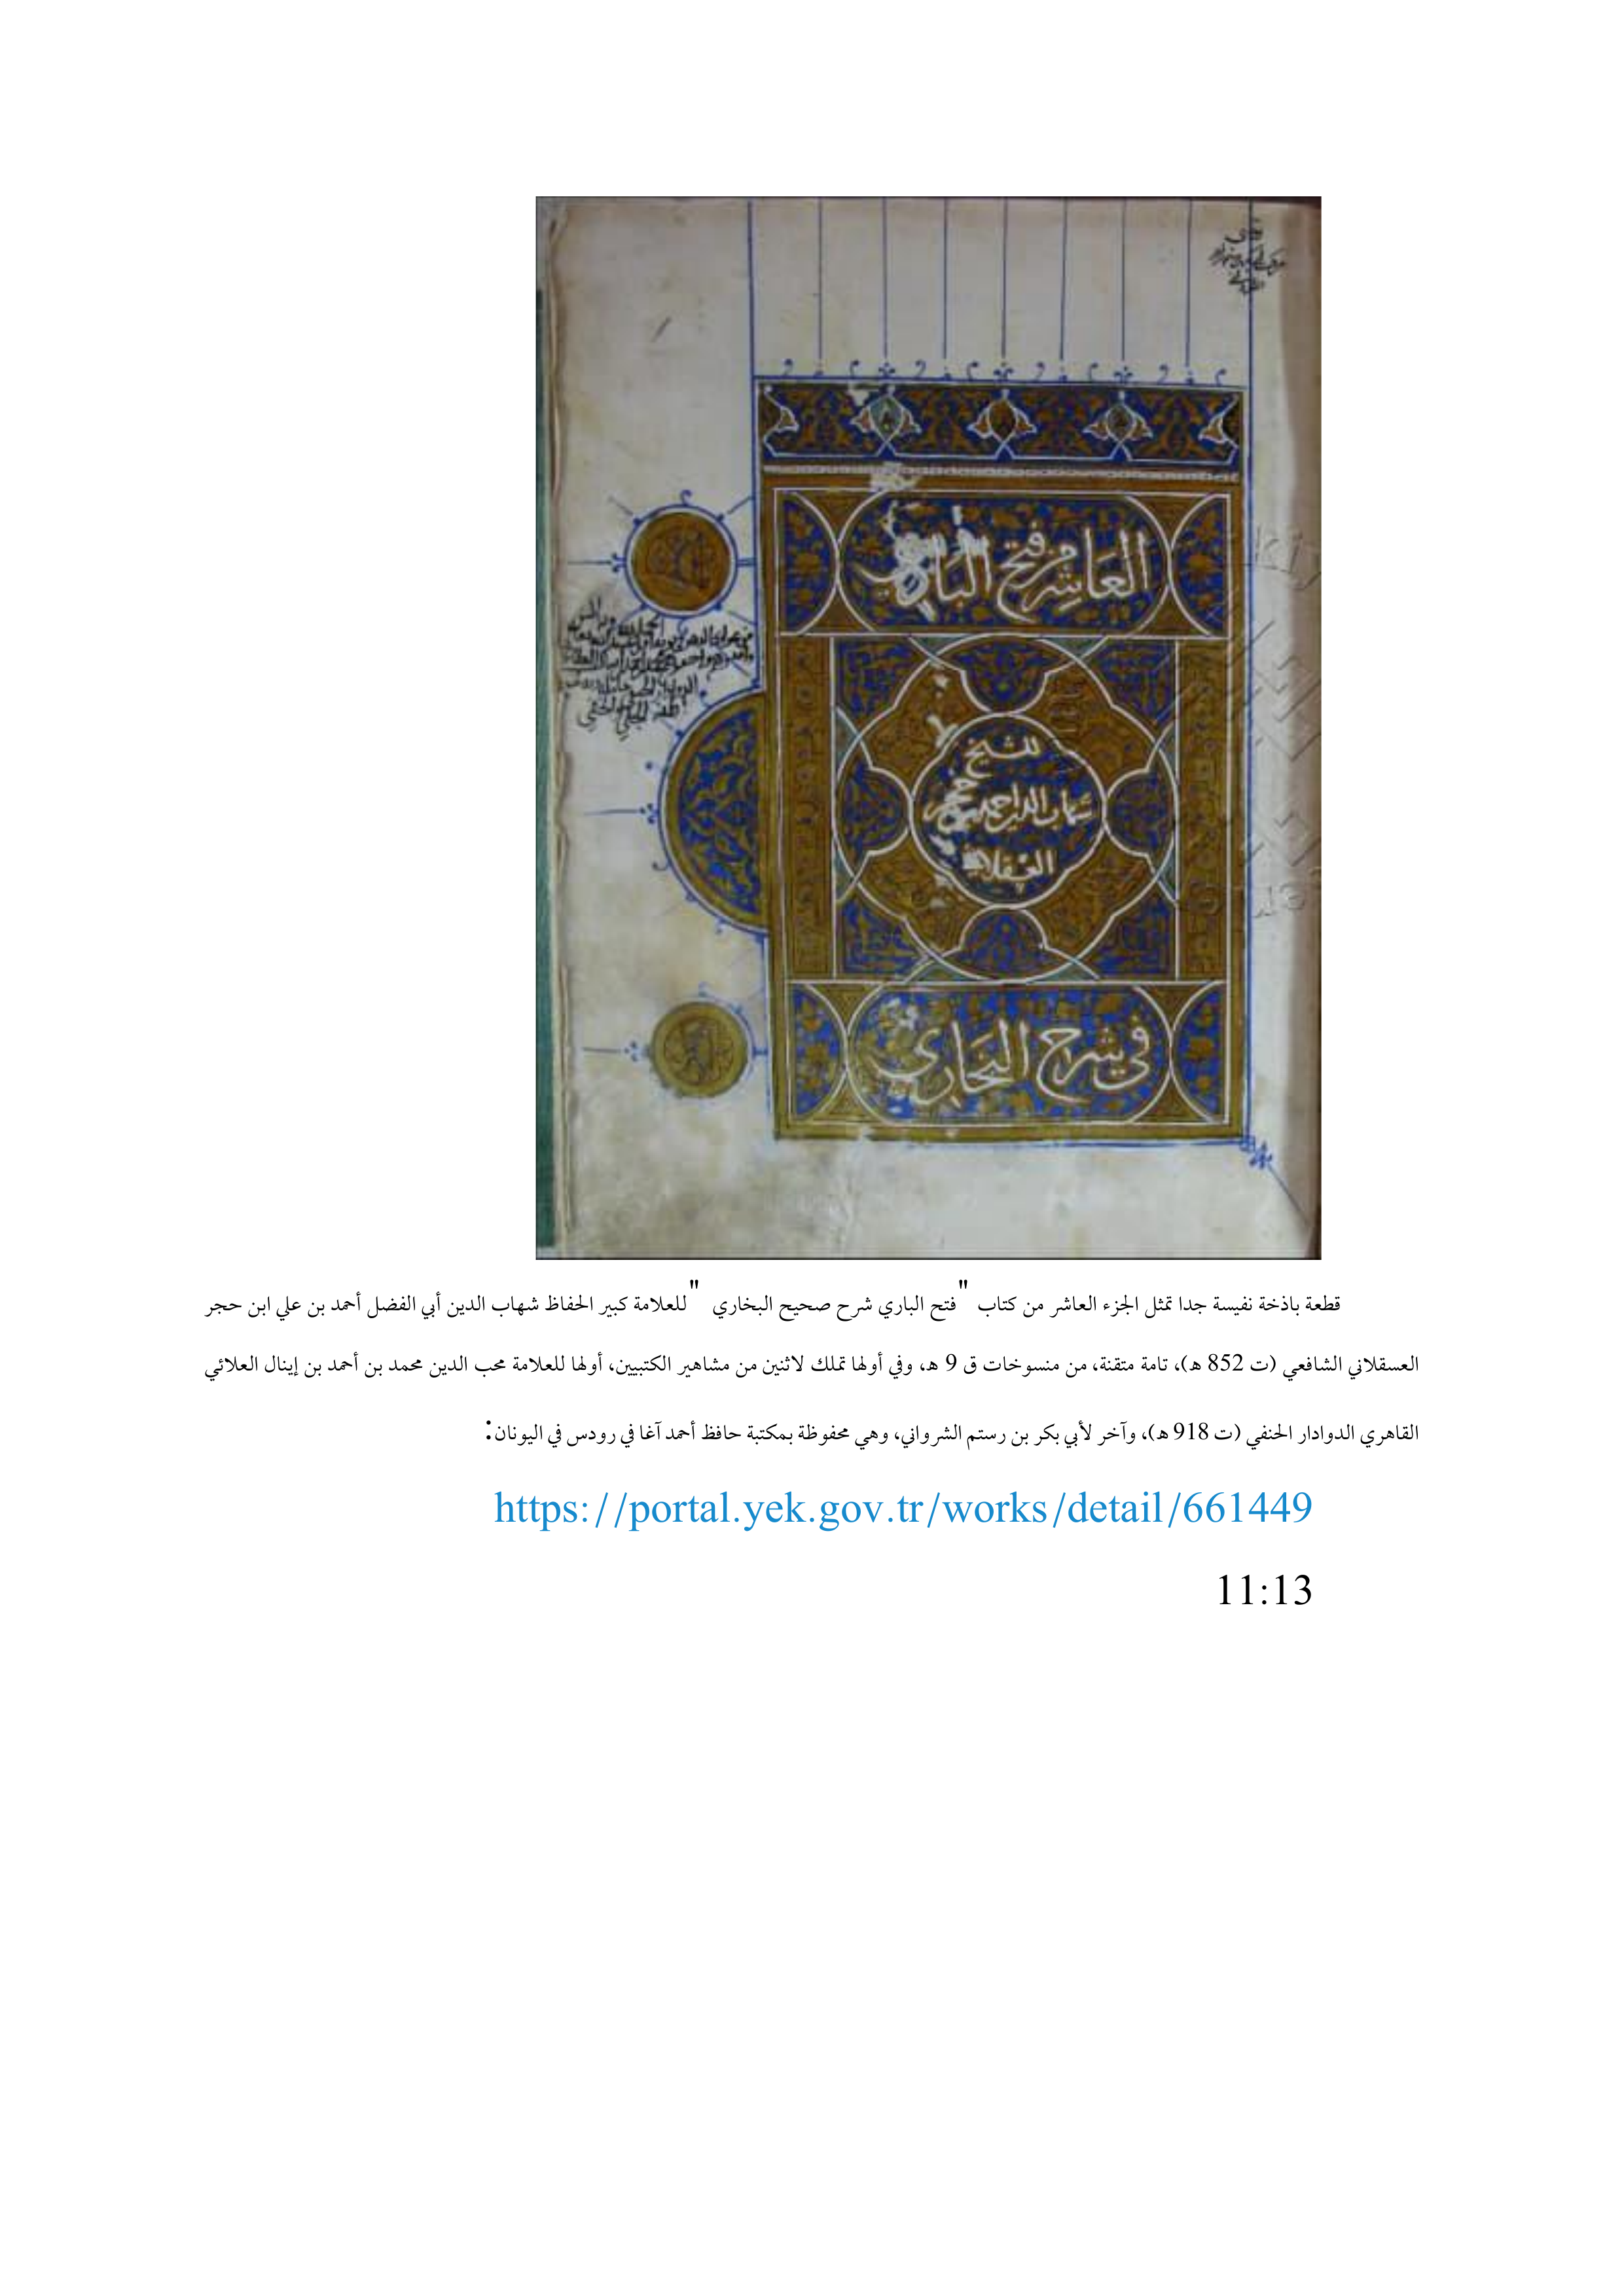 العاشر من فتح الباري
للشيخ
شهاب الدين احمد بن حجر
العسقلاني
في شرح البخاري
قطعة باذخة نفيسة جدا تمثل الجزء العاشر من كتاب "فتح الباري شرح صحيح البخاري" للعلامة كبير الحفاظ شهاب الدين أبي الفضل أحمد بن علي ابن حجر
العسقلاني الشافعي (ت 852 هـ)، تامة متقنة، من منسوخات ق 9 هـ، وفي أولها تملك لاثنين من مشاهير الكتبيين، أولها للعلامة محب الدين محمد بن أحمد بن إينال العلائي
القاهري الدوادار الحنفي (ت 918 هـ)، وآخر لأبي بكر بن رستم الشرواني، وهي محفوظة بمكتبة حافظ أحمد آغا في رودس في اليونان:
https://portal.yek.gov.tr/works/detail/661449
11:13